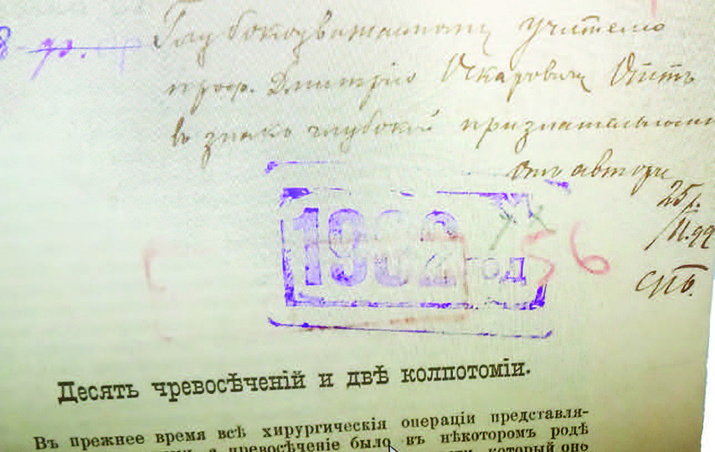 Глубокоуважаемому учителю
проф. Дмитрію Оскаровичу Оттъ
въ знакъ глубокой признательности
отъ автора
25
/II.99
СПб.
1932 год
56
Десять чревосѣченій и двѣ колпотоміи.
Въ прежнее время всѣ хирургическія операціи представля-
а чревосѣченіе было въ нѣкоторомъ родѣ
который оно